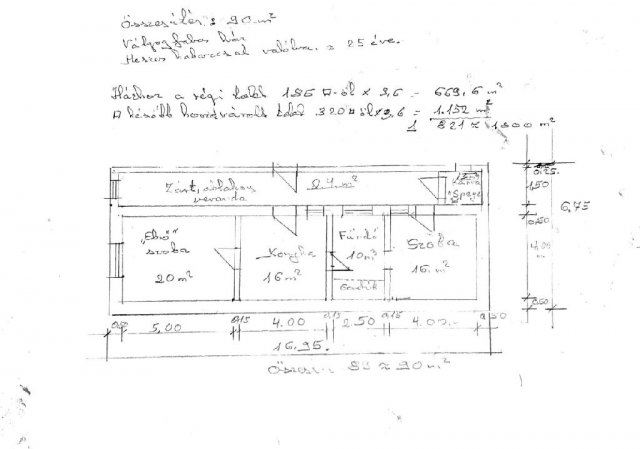 Összesítés: 90 m²
Vályog falas ház
25 éve.
Házhoz a régi telek 186 □-öl x 3,6 = 669,6 m²
A később hozzávásárolt telek 320 □öl x 3,6 = 1.152 m²
1821 ≈ 1800 m²
Zárt, ablakos veranda
24 m²
Kamra
"Spajz"
0.25.
1.50
6,75
0.50
4,00
0.50
„Első" szoba
20 m²
Konyha
16 m²
Fürdő
10 m²
Szoba
16. m²
0.50 5,00 0.15 4.00 0.15 2.50 0.15 4.00 0.50
16.95.
Összesen 89 ≈ 90 m²